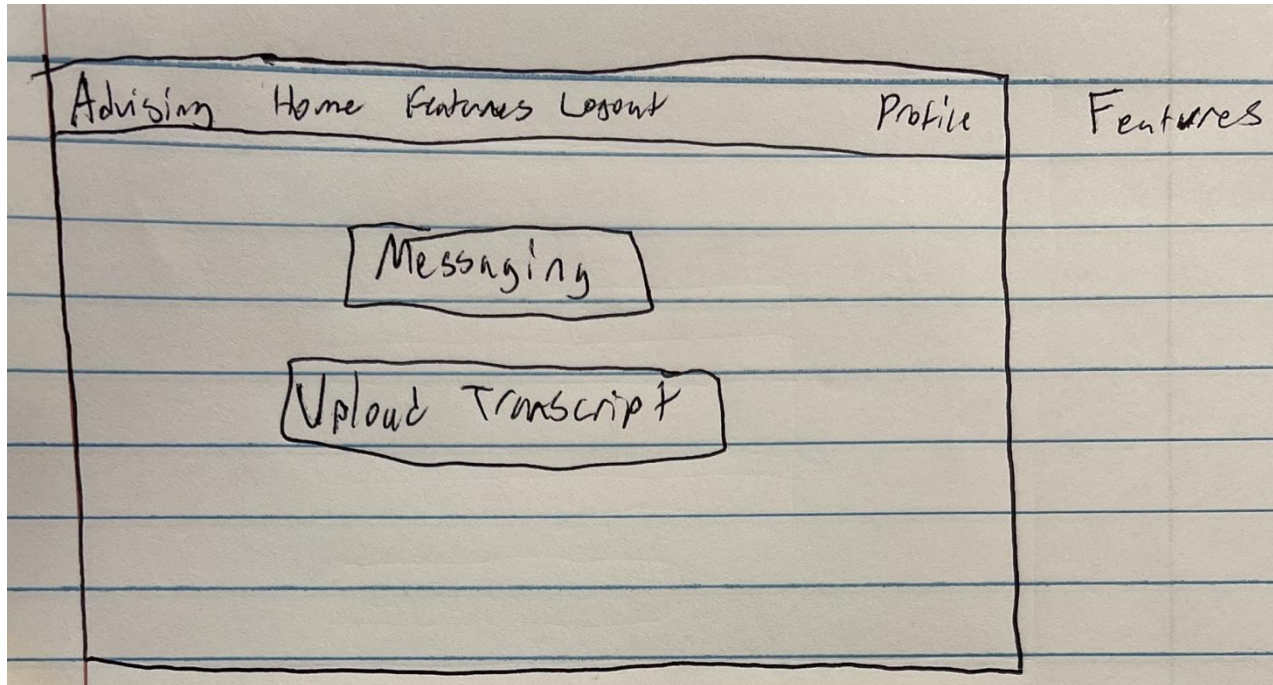 Advising Home Features Logout Profile Features
Messaging
Upload Transcript